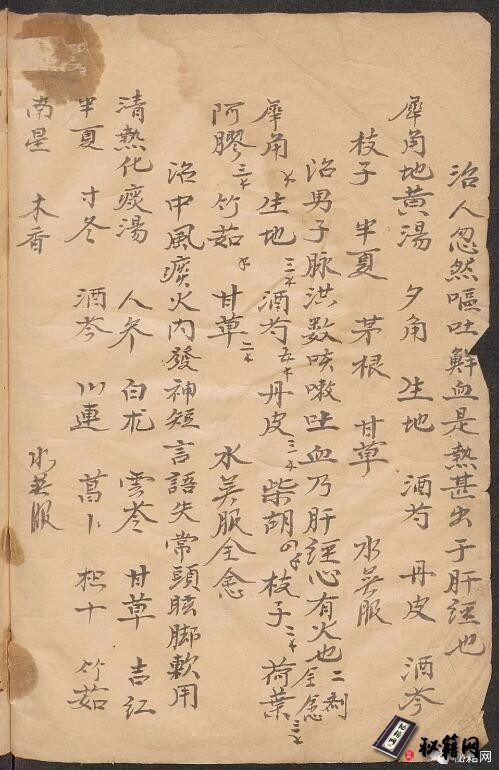 治人忽然嘔吐鮮血是熱甚出于肝經也
犀角地黃湯 夕角 生地 酒芍 丹皮 酒芩
枝子 半夏 茅根 甘草 水煎服
治男子脉洪数咳嗽吐血乃肝經心有火也二剤全愈
犀角 生地三 酒芍五 丹皮三 柴胡 枝子二 荷葉三
阿膠三 竹茹 甘草二 水煎服全愈
治中風痰火內發神短言語失常頭眩脚軟用
清熱化痰湯 人参 白朮 雲苓 甘草 吉红
半夏 寸冬 酒芩 川連 萬卜 枳十 竹茹
南星 木香 水煎服
秘籍网
秘籍网